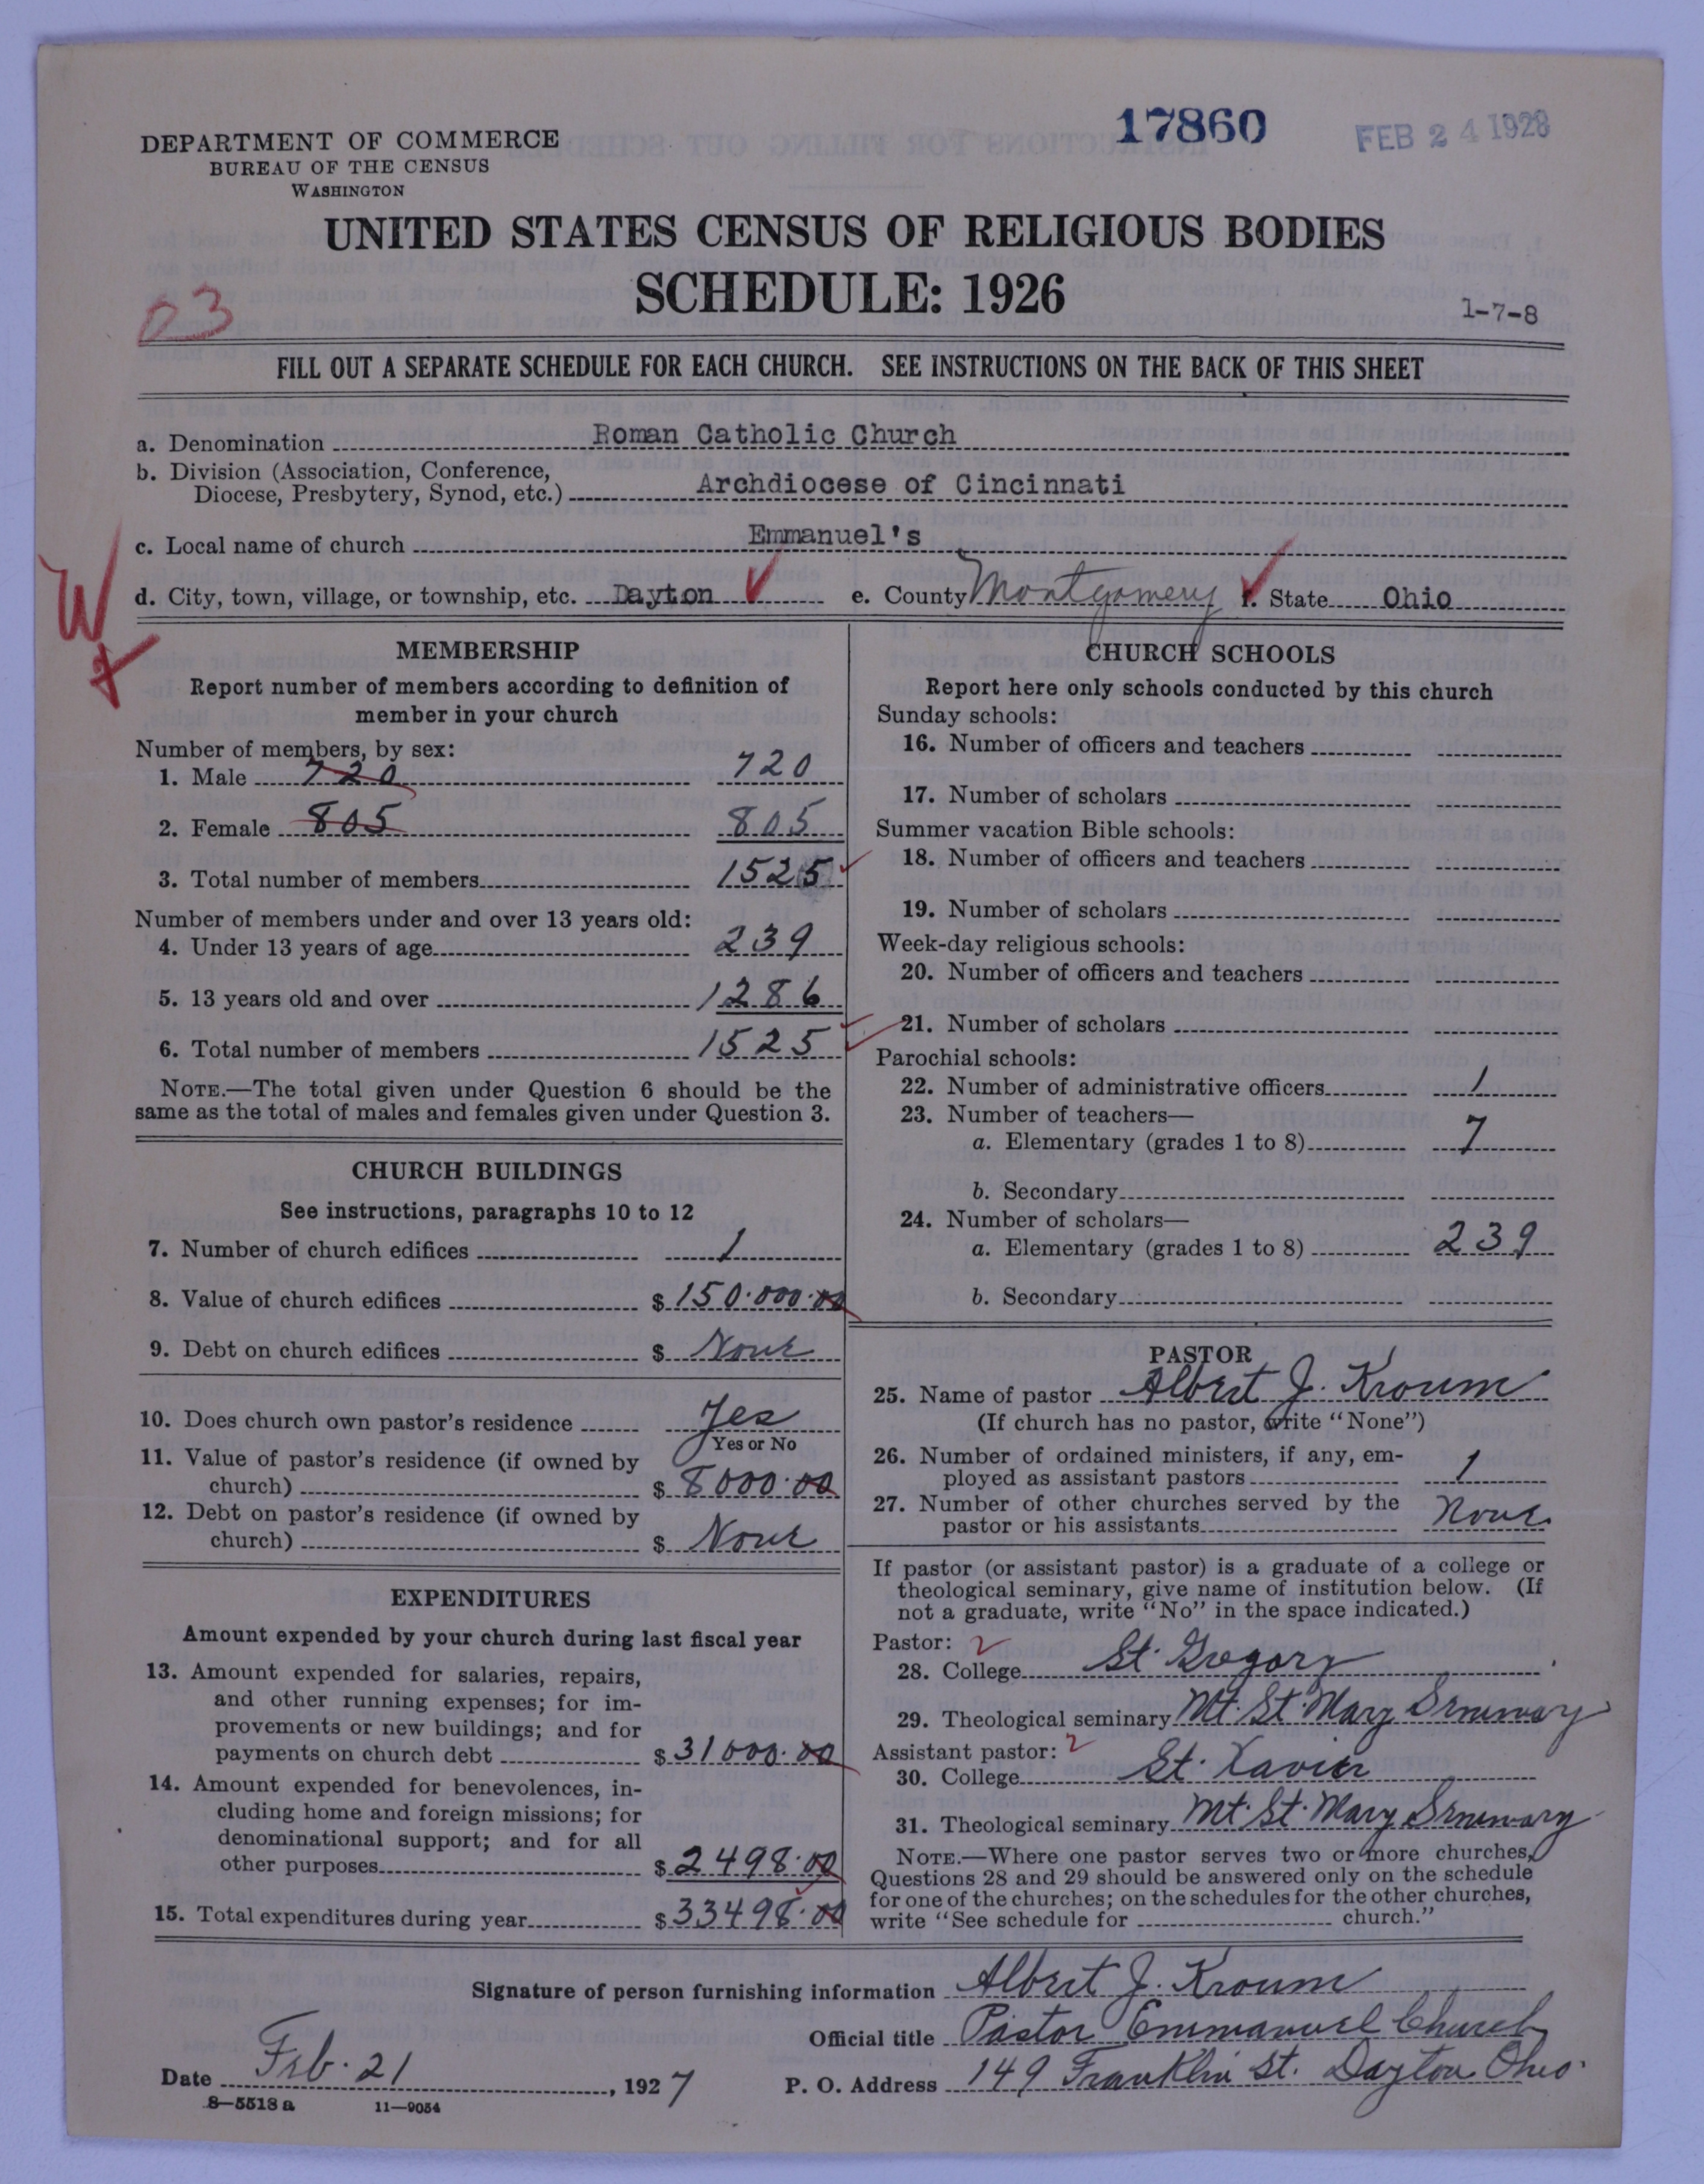 17860
FEB 24 1928
DEPARTMENT OF COMMERCE
BUREAU OF THE CENSUS
WASHINGTON
UNITED STATES CENSUS OF RELIGIOUS BODIES
SCHEDULE: 1926
03
1-7-8
FILL OUT A SEPARATE SCHEDULE FOR EACH CHURCH. SEE INSTRUCTIONS ON THE BACK OF THIS SHEET
a. Denomination Roman Catholic Church
b. Division (Association, Conference,
Diocese, Presbytery, Synod, etc.) Archdiocese of Cincinnati
c. Local name of church Emmanuel's
W
d. City, town, village, or township, etc. Dayton e. County Montgomery f. State Ohio
MEMBERSHIP
Report number of members according to definition of
member in your church
Number of members, by sex:
1. Male 720 720
2. Female 805 805
3. Total number of members 1525
Number of members under and over 13 years old:
4. Under 13 years of age 239
5. 13 years old and over 1286
6. Total number of members 1525
NOTE.—The total given under Question 6 should be the
same as the total of males and females given under Question 3.
CHURCH BUILDINGS
See instructions, paragraphs 10 to 12
7. Number of church edifices 1
8. Value of church edifices $ 150.000.00
9. Debt on church edifices $ None
10. Does church own pastor's residence Yes
Yes or No
11. Value of pastor's residence (if owned by
church) $ 8000.00
12. Debt on pastor's residence (if owned by
church) $ None
EXPENDITURES
Amount expended by your church during last fiscal year
13. Amount expended for salaries, repairs,
and other running expenses; for im-
provements or new buildings; and for
payments on church debt $ 31000.00
14. Amount expended for benevolences, in-
cluding home and foreign missions; for
denominational support; and for all
other purposes $ 2498.00
15. Total expenditures during year $ 33498.00
CHURCH SCHOOLS
Report here only schools conducted by this church
Sunday schools:
16. Number of officers and teachers
17. Number of scholars
Summer vacation Bible schools:
18. Number of officers and teachers
19. Number of scholars
Week-day religious schools:
20. Number of officers and teachers
21. Number of scholars
Parochial schools:
22. Number of administrative officers 1
23. Number of teachers—
a. Elementary (grades 1 to 8) 7
b. Secondary
24. Number of scholars—
a. Elementary (grades 1 to 8) 239
b. Secondary
PASTOR
25. Name of pastor Albert J. Kroum
(If church has no pastor, write "None")
26. Number of ordained ministers, if any, em-
ployed as assistant pastors 1
27. Number of other churches served by the
pastor or his assistants None
If pastor (or assistant pastor) is a graduate of a college or
theological seminary, give name of institution below. (If
not a graduate, write "No" in the space indicated.)
Pastor: 2
28. College St. Gregory
29. Theological seminary Mt. St. Mary Seminary
Assistant pastor: 2
30. College St. Xavier
31. Theological seminary Mt. St. Mary Seminary
NOTE.—Where one pastor serves two or more churches,
Questions 28 and 29 should be answered only on the schedule
for one of the churches; on the schedules for the other churches,
write "See schedule for church."
Signature of person furnishing information Albert J. Kroum
Official title Pastor Emmanuel Church
Date Feb. 21, 1927 P. O. Address 149 Franklin St. Dayton Ohio.
8—5518 a 11—9054